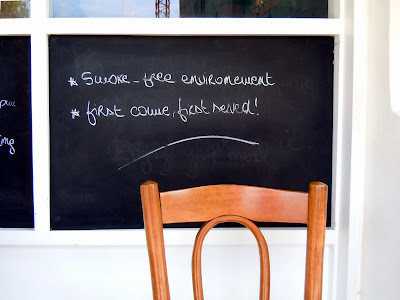 * Smoke-free enviromement
* first come, first served!
ing